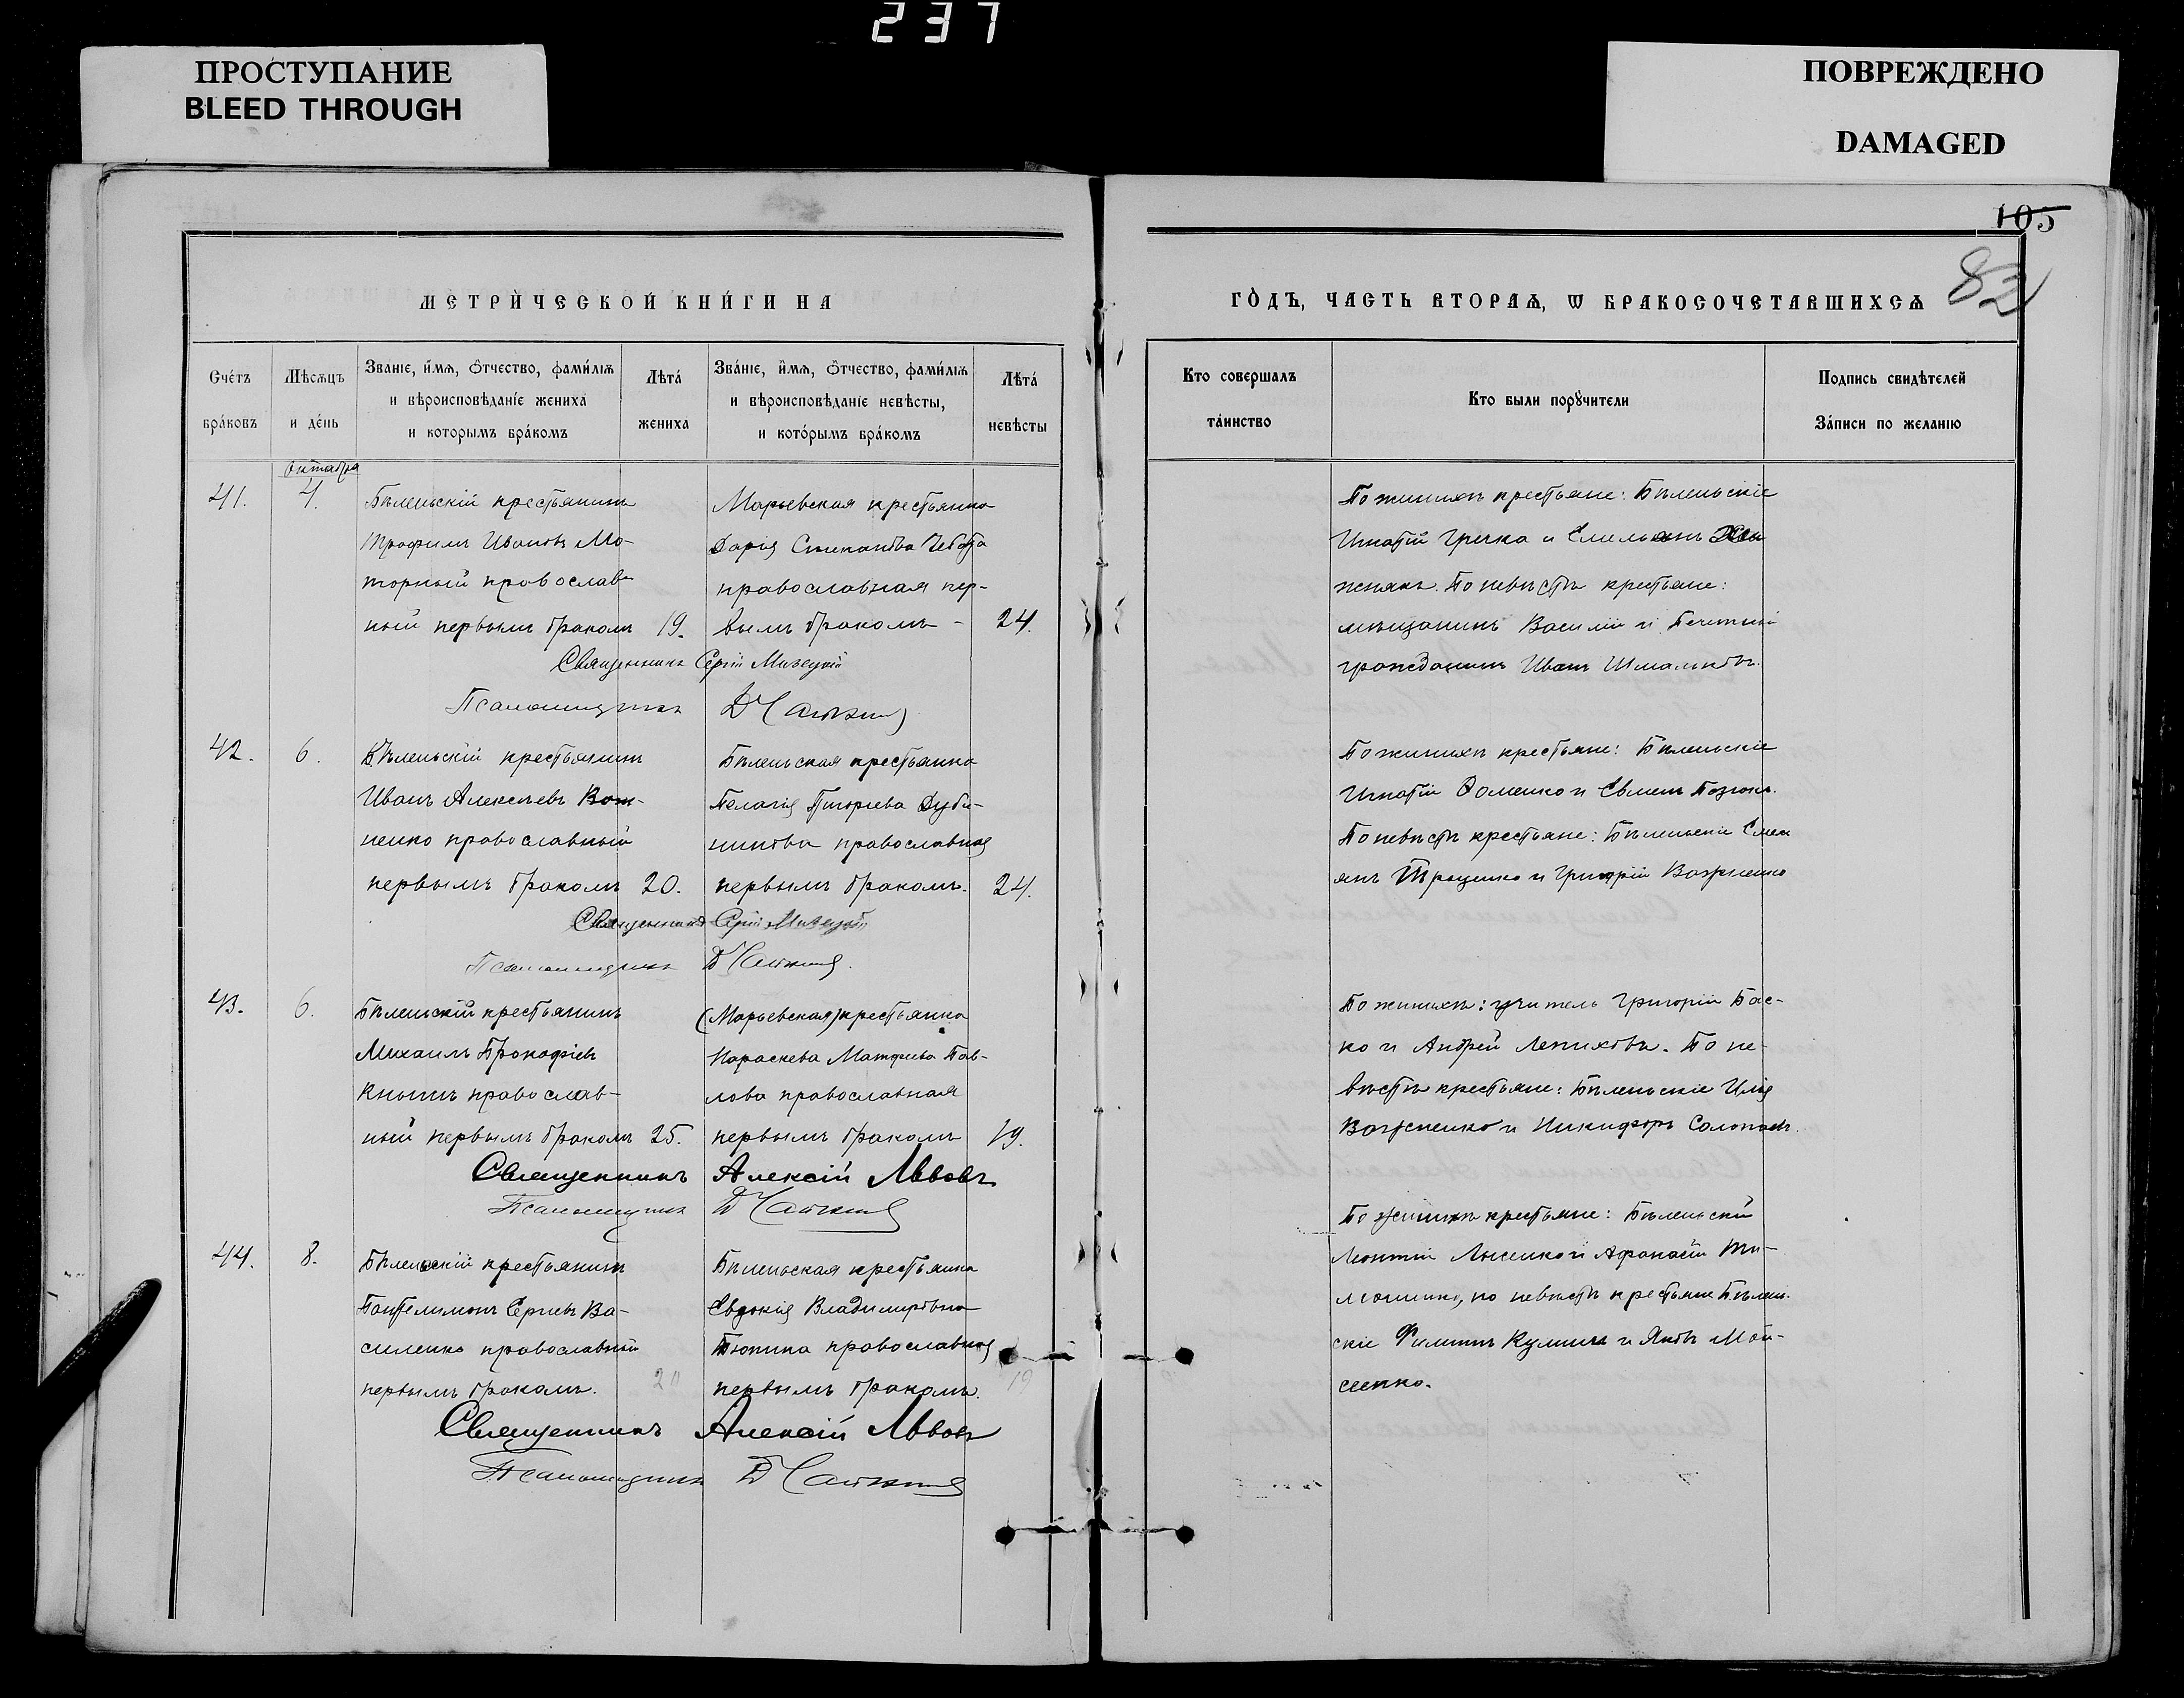 237
ПРОСТУПАНИЕ
BLEED THROUGH
ПОВРЕЖДЕНО
DAMAGED
105
82
МЕТРИ́ЧЕСКОЙ КНИ́ГИ НА
ГО́ДЪ, ЧАСТЬ ВТОРАѦ, Ѡ БРАКОСОЧЕТАВШИХСѦ
Счéтъ бра́ковъ
Мѣсѧцъ и де́нь
Зва́нїе, и́мѧ, ѻ҆́тчество, фами́лїѧ и вѣроисповѣданїе жениха и которымъ бра́комъ
Лѣта́ жениха
Зва́нїе, и́мѧ, ѻ҆́тчество, фами́лїѧ и вѣроисповѣданїе невѣсты, и кото́рымъ бра́комъ
Лѣта́ невѣсты
Кто совершалъ та́инство
Кто были порꙋчители
Подпись свидѣтелей За́писи по желанїю
октября
41.
4.
Бѣленьскій крестьянинъ
Трофимъ Ивановъ Мо-
торный православ-
ный первымъ бракомъ
19.
Марьевская крестьянка
Дарія Степанова
православная пер-
вымъ бракомъ -
24.
По женихѣ крестьяне: Бѣленьскіе
Игнатій Гречка и Емельянъ
По невѣстѣ крестьяне:
мѣщанинъ Василій и Почетный
гражданинъ Иванъ
Священникъ Сергій
Псаломщикъ
42.
6.
Бѣленьскій крестьянинъ
Иванъ Алексѣевъ Важ-
ненко православный
первымъ бракомъ
20.
Бѣленьская крестьянка
Пелагія Григорьева Дуби-
нинова православная
первымъ бракомъ.
24.
По женихѣ крестьяне: Бѣленьскіе
Игнатій Доменко и
По невѣстѣ крестьяне: Бѣленьскіе Емел
янъ Троценко и Григорій Важненко
Священникъ Сергій
Псаломщикъ
43.
6.
Бѣленьскій крестьянинъ
Михаилъ Прокофіевъ
православ-
ный первымъ бракомъ
25.
(Марьевская) крестьянка
Параскева Матфіева Пав-
лова православная
первымъ бракомъ
19.
По женихѣ: учитель Григорій Бас-
ко и Андрей Лепиховъ. По не-
вѣстѣ крестьяне: Бѣленьскіе Илія
Важненко и Никифоръ
Священникъ Алексій Львовъ
Псаломщикъ
44.
8.
Бѣленьскій крестьянинъ
Пантелимонъ Сергіевъ Ва-
силенко православный
первымъ бракомъ.
20
Бѣленьская крестьянка
Евдокія Владимірова
Тюпина православная
первымъ бракомъ.
19
По женихѣ крестьяне: Бѣленьскій
Леонтій Лысенко и Афанасій Ти-
мошенко, по невѣстѣ крестьяне Бѣлень-
скіе Филиппъ и Яковъ Мои-
сеенко.
Священникъ Алексій Львовъ
Псаломщикъ